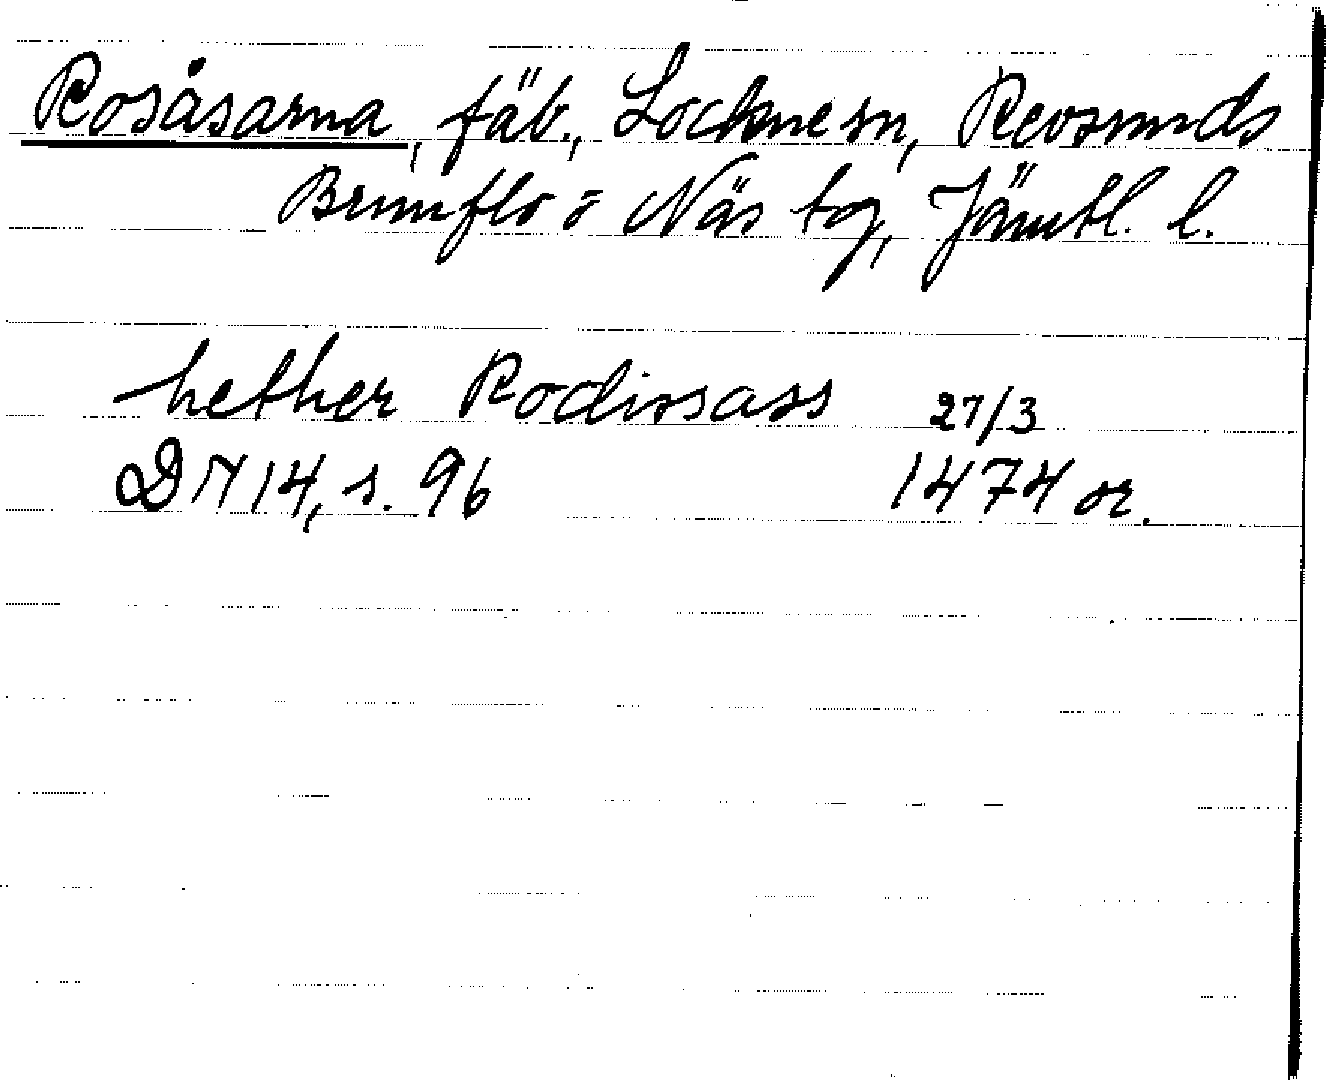 Rosåsarna, fäb., Lockne sn, Revsunds
Brunflo o Näs tg, Jämtl. l.
hether Rodissass 27/3
DN 14, s. 96 1474 or.